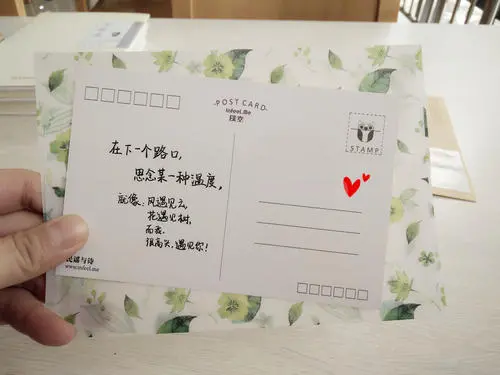 POST CARD
Infeel.Me
STAMP
在下一个路口,
思念某一种温度,
就像:风遇见云,
花遇见树,
而我
很高兴,遇见你!
民谣与诗
www.infeel.me